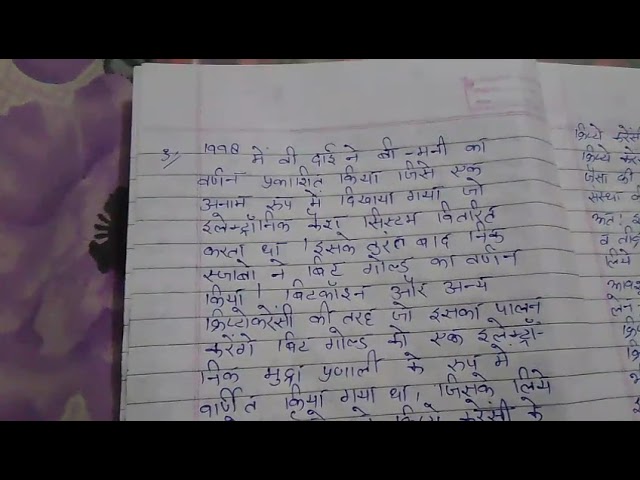 3// 1998 में वी दाई ने बी-मनी का
वर्णन प्रकाशित किया जिसे एक
अनाम रुप में दिखाया गया जो
इलेक्ट्रॉनिक कैश सिस्टम वितरित
करता था । इसके तुरंत बाद निक
स्जाबो ने बिट गोल्ड का वर्णन
किया । बिटकॉइन और अन्य
क्रिप्टोकरेंसी की तरह जो इसका पालन
करेंगे बिट गोल्ड को एक इलेक्ट्रॉ-
निक मुद्रा प्रणाली के रुप में
वर्णित किया गया था। जिसके लिये
करेंसी के
क्रिप्टो
क्रिप्टो
जैसा की
संस्था
अतः
व
लिये